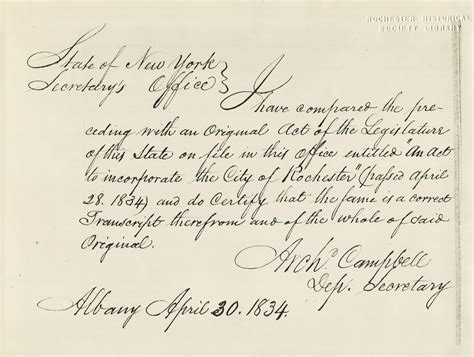 ROCHESTER HISTORICAL
SOCIETY LIBRARY
State of New York }
Secretary's Office }
I have compared the pre-
ceding with an Original Act of the Legislature
of this State on file in this Office entitled "An Act
to incorporate the City of Rochester" (passed April
28. 1834) and do Certify that the same is a correct
Transcript therefrom and of the whole of said
Original.
Archd. Campbell
Dep. Secretary
Albany April 30. 1834.